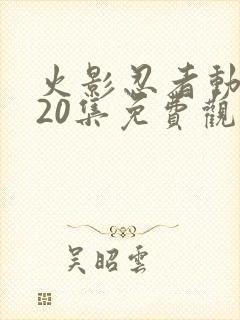 火影忍者動
20集免費觀
吴昭雲